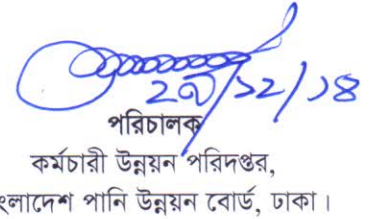 পরিচালক
কর্মচারী উন্নয়ন পরিদপ্তর,
ংলাদেশ পানি উন্নয়ন বোর্ড, ঢাকা।